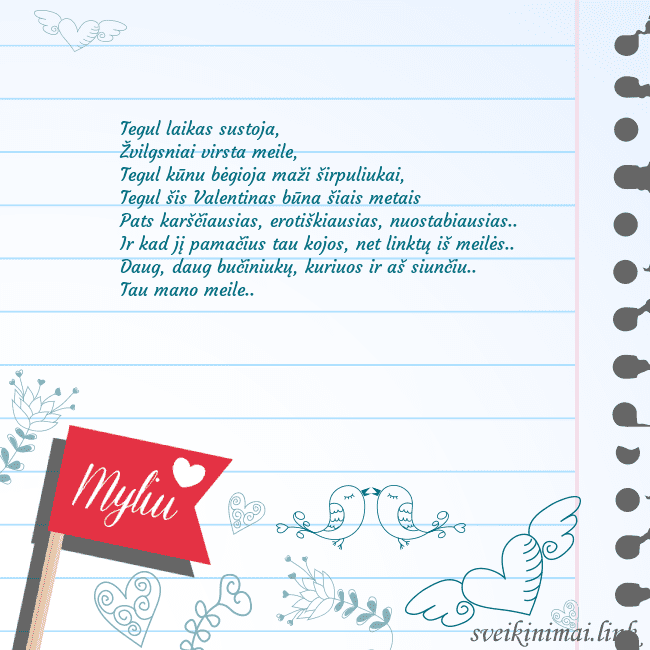 Tegul laikas sustoja,
Žvilgsniai virsta meile,
Tegul kūnu bėgioja maži širpuliukai,
Tegul šis Valentinas būna šiais metais
Pats karščiausias, erotiškiausias, nuostabiausias..
Ir kad jį pamačius tau kojos, net linktų iš meilės..
Daug, daug bučiniukų, kuriuos ir aš siunčiu..
Tau mano meile..
Myliu
sveikinimai.link